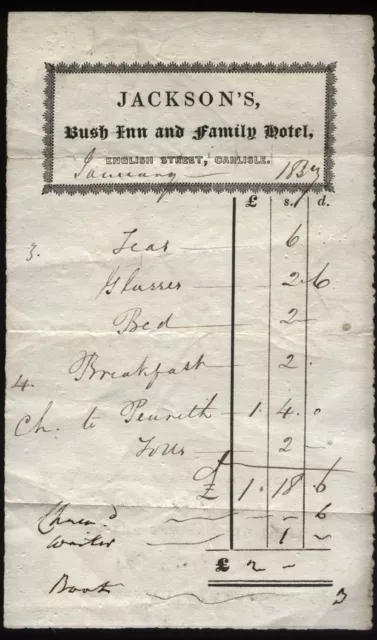 JACKSON'S,
Bush Inn and Family Hotel,
ENGLISH STREET, CARLISLE.
January 183
£ s. d.
3. Teas 6
Glasses 2 6
Bed 2 –
4. Breakfast 2
Ch. to Penrith 1. 4. 0
Tolls 2 –
£ 1. 18. 6
– 6
Waiter 1 –
£ 2 –
Boots 3